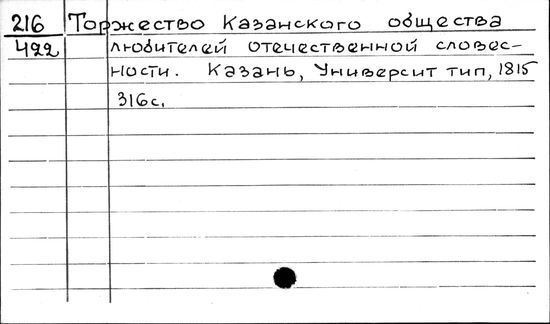 216 Торжество Казанского общества
422 любителей отечественной словес-
ности. Казань, Университ тип, 1815
316с.